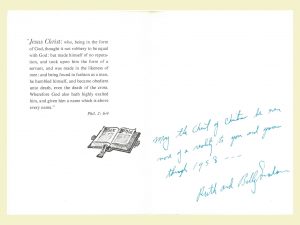 "Jesus Christ: who, being in the form
of God, thought it not robbery to be equal
with God: but made himself of no reputa-
tion, and took upon him the form of a
servant, and was made in the likeness of
men: and being found in fashion as a man,
he humbled himself, and became obedient
unto death, even the death of the cross.
Wherefore God also hath highly exalted
him, and given him a name which is above
every name."
Phil. 2: 6-9
May the Christ of Christmas be more
and of a reality to you and yours
through 1958 ---
Ruth and Billy Graham